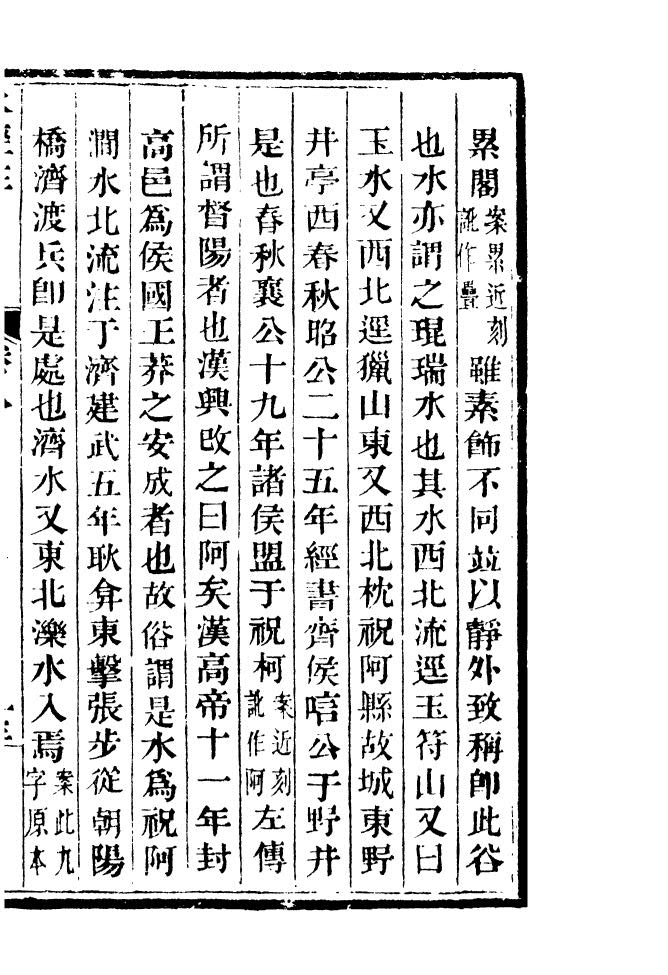 累閣案累近刻訛作疊雖素飾不同竝以靜外致稱卽此谷
也水亦謂之琨瑞水也其水西北流逕玉符山又曰
玉水又西北逕獵山東又西北枕祝阿縣故城東野
井亭西春秋昭公二十五年經書齊侯唁公于野井
是也春秋襄公十九年諸侯盟于祝柯案近刻訛作阿左傳
所謂督陽者也漢興改之曰阿矣漢高帝十一年封
高邑爲侯國王莽之安成者也故俗謂是水爲祝阿
澗水北流注于濟建武五年耿弇東擊張步從朝陽
橋濟渡兵卽是處也濟水又東北濼水入焉案此九字原本